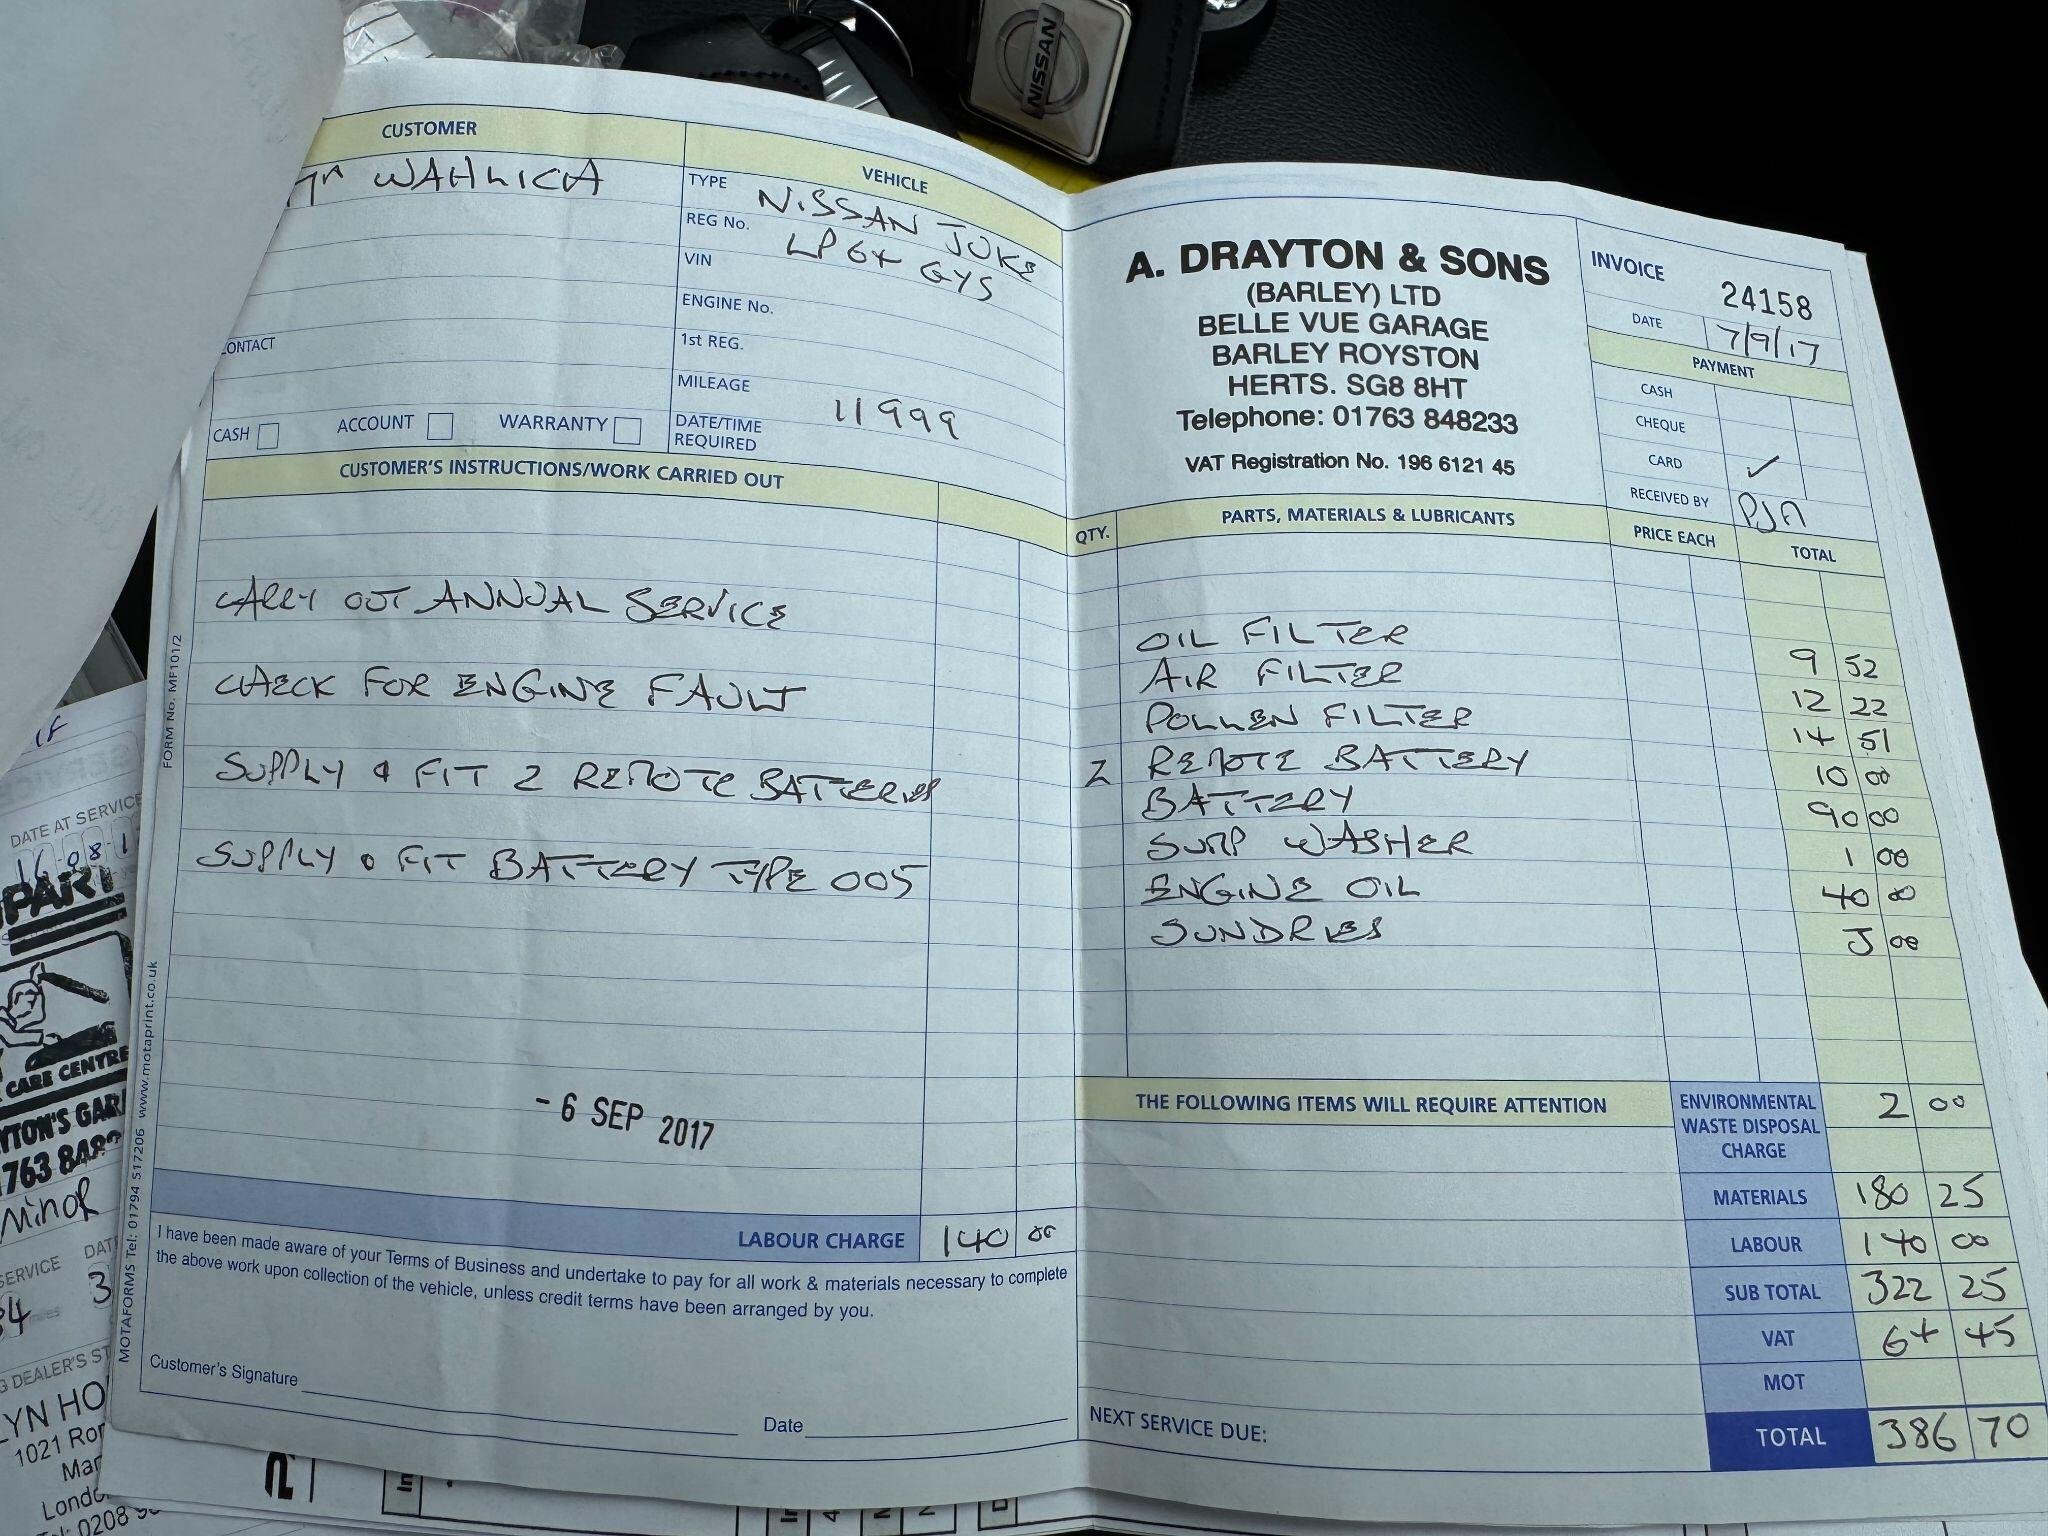 NISSAN
CUSTOMER
WAHLICA
CONTACT
CASH
ACCOUNT
WARRANTY
VEHICLE
TYPE NISSAN JUKE
REG No. LP64 GYS
VIN
ENGINE No.
1st REG.
MILEAGE 11999
DATE/TIME
REQUIRED
CUSTOMER'S INSTRUCTIONS/WORK CARRIED OUT
CARRY OUT ANNUAL SERVICE
CHECK FOR ENGINE FAULT
SUPPLY & FIT 2 REMOTE BATTERIES
SUPPLY & FIT BATTERY TYPE 005
- 6 SEP 2017
LABOUR CHARGE 140 00
I have been made aware of your Terms of Business and undertake to pay for all work & materials necessary to complete
the above work upon collection of the vehicle, unless credit terms have been arranged by you.
Customer's Signature
Date
FORM No. MF101/2
MOTAFORMS Tel: 01794 517206 www.motaprint.co.uk
A. DRAYTON & SONS
(BARLEY) LTD
BELLE VUE GARAGE
BARLEY ROYSTON
HERTS. SG8 8HT
Telephone: 01763 848233
VAT Registration No. 196 6121 45
INVOICE 24158
DATE 7/9/17
PAYMENT
CASH
CHEQUE
CARD ✓
RECEIVED BY
QTY. PARTS, MATERIALS & LUBRICANTS PRICE EACH TOTAL
OIL FILTER 9 52
AIR FILTER 12 22
POLLEN FILTER 14 51
2 REMOTE BATTERY 10 00
BATTERY 90 00
SUMP WASHER 1 00
ENGINE OIL 40 00
SUNDRIES 3 00
THE FOLLOWING ITEMS WILL REQUIRE ATTENTION
ENVIRONMENTAL
WASTE DISPOSAL
CHARGE 2 00
MATERIALS 180 25
LABOUR 140 00
SUB TOTAL 322 25
VAT 64 45
MOT
TOTAL 386 70
NEXT SERVICE DUE:
DATE AT SERVICE
16 08 1
CARE CENTRE
Minor
1021
0208